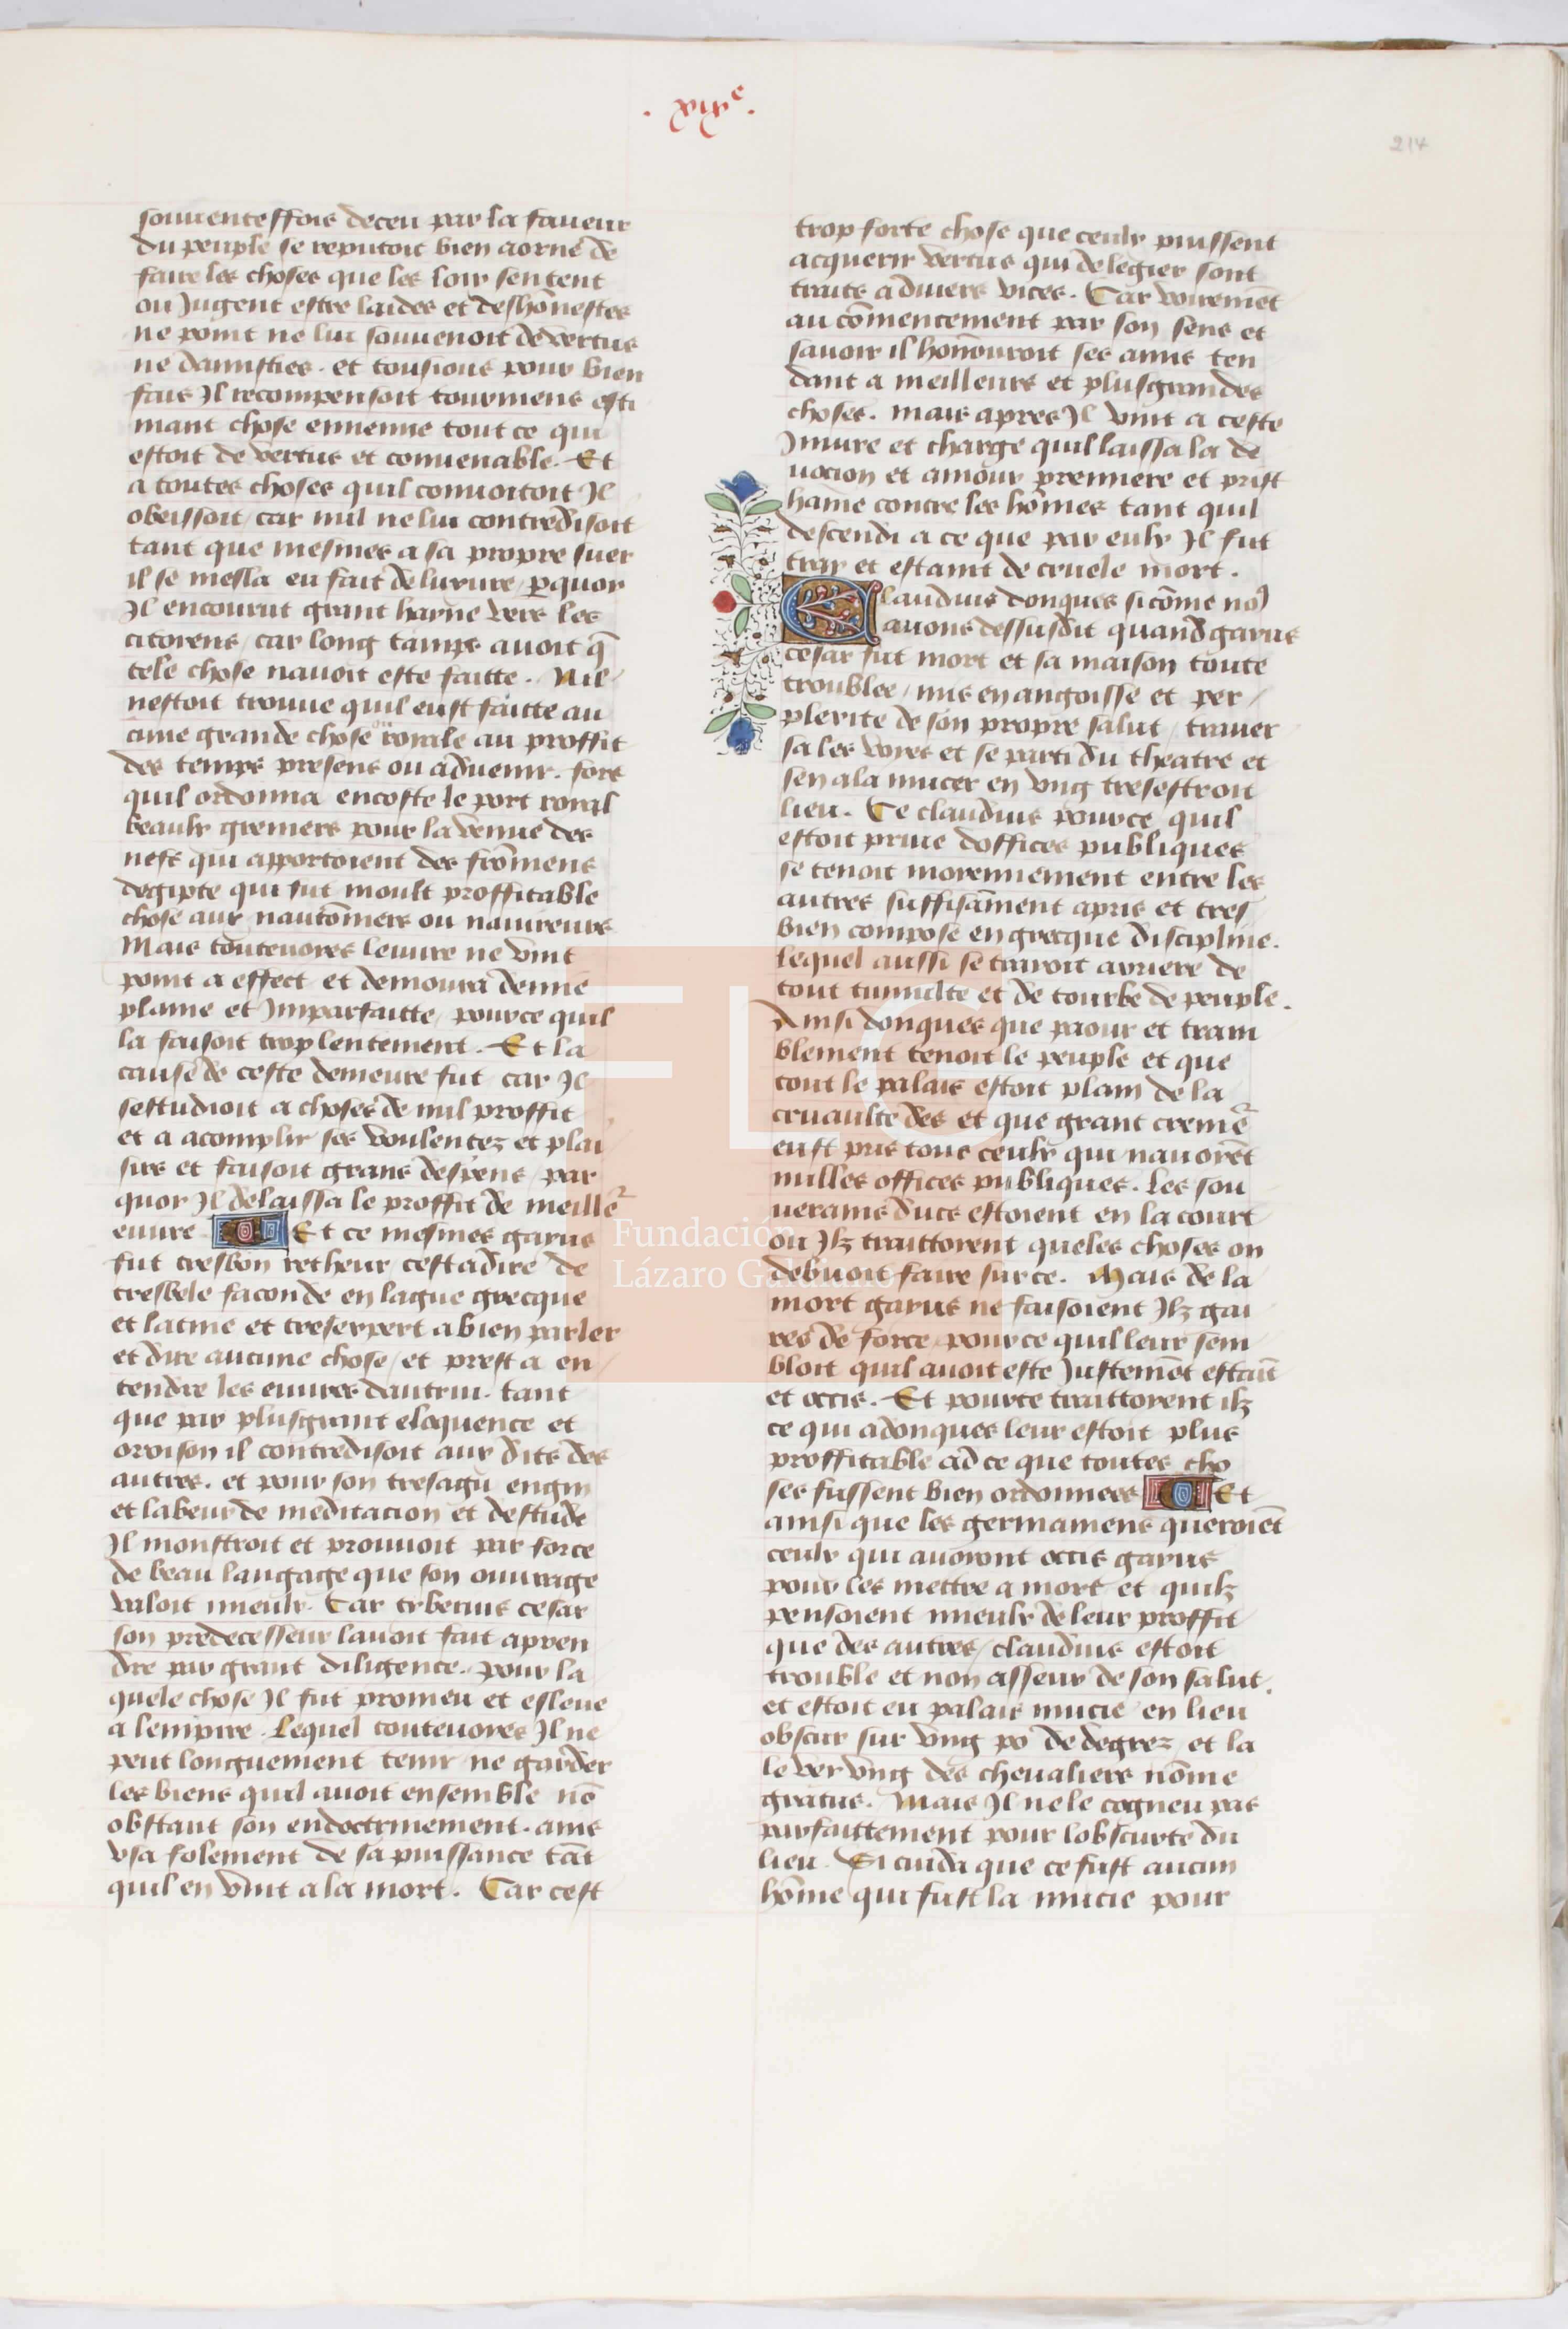 .xixe.
214
souuenteffois deceu par la faueur
du peuple se reputoit bien aorne de
faire les choses que les loix sentent
ou Jugent estre laides et deshōnestes
ne point ne lui souuenoit de vertus
ne damisties. et tousiours pour bien
fais Il recompensoit tourmens esti
mant chose ennemie tout ce qui
estoit de vertus et conuenable. Et
a toutes choses quil conuoitoit Il
obeissoit / car nul ne lui contredisoit
tant que mesmes a sa propre suer
il se mesla en fait de luxure / pquoy
Il encourut grant hayne vers les
citoyens / car long tamps auoit q̄
tele chose nauoit este faitte. Nil
nestoit trouue quil eust faitte au
cune grande chose ou royale au proffit
des temps presens ou aduenir. fors
quil ordonna encoste le port royal
beaulx greniers pour la venue des
nefs qui apportoient des fromens
degipte qui fut moult proffitable
chose aux nautōniers ou nauieurs
Mais touteuoyes leuure ne vint
point a effect et demoura demie
plaine et Imparfaitte / pource quil
la faisoit trop lentement. Et la
cause de ceste demeure fut car Il
sestudioit a choses de nul proffit
et a acomplir ses voulentez et plai
sirs et faisoit grans despens / par
quoy Il delaissa le proffit de meille
euure Et ce mesmes gayus
fut tresbon retheur cestadire de
tresbele faconde en lague grecque
et latine et tresexpert a bien parler
et dire aucune chose / et prest a en
tendre les euures dautrui. tant
que par plusgrant eloquence et
oroison il contredisoit aux dits des
autres. et pour son tresagu engin
et labeur de meditacion et destude
Il monstroit et prouuoit par force
de beau langage que son ouurage
valoit mieulx. Car tyberius cesar
son predecesseur lauoit fait apren
dre par grant diligence. pour la
quele chose Il fut promeu et esleue
a lempire. Lequel touteuoyes Il ne
peut longuement tenir ne garder
les biens quil auoit ensemble nō
obstant son endoctrinement. ains
vsa folement de sa puissance tāt
quil en vint a la mort. Car cest
trop forte chose que ceulx puissent
acquerir vertus qui de legier sont
traits a diuers vices. Car voiremēt
au cōmencement par son sens et
sauoir il honnouroit ses amis ten
dant a meilleurs et plusgrandes
choses. mais apres Il vint a ceste
Iniure et charge quil laissa la de
uocion et amour premiere et prist
haine contre les hōmes tant quil
descendi a ce que par eulx Il fut
tray et estaint de cruele mort.
Claudius donques sicōme no9
auons dessusdit quand gayus
cesar fut mort et sa maison toute
troublee / mis en angoisse et per
plexite de son propre salut / trauer
sa les voyes et se parti du theatre et
sen ala mucer en vng tresestroit
lieu. Ce claudius pource quil
estoit priue doffices publiques
se tenoit moyennement entre les
autres suffisāment apris et tres
bien compose en grecque discipline.
lequel aussi se traioit arriere de
tout tumulte et de tourbe de peuple.
Ainsi donques que paour et tram
blement tenoit le peuple et que
tout le palais estoit plain de la
cruaulte des et que grant cremē
eust pris tous ceulx qui nauoiēt
nulles offices publiques. Les sou
uerains ducs estoient en la court
ou Ilz traittoyent queles choses on
debuoit faire sur ce. Mais de la
mort gayus ne faisoient Ilz gai
res de force / pource quil leur sem
bloit quil auoit este Justemēt estaīt
et occis. Et pource traittoyent ilz
ce qui adonques leur estoit plus
proffitable ad ce que toutes cho
ses fussent bien ordonnees Et
ainsi que les germaniens queroiēt
ceulx qui auoyent occis gayus
pour les mettre a mort et quilz
pensoient mieulx de leur proffit
que des autres / claudius estoit
trouble et non asseur de son salut.
et estoit eu palais mucie en lieu
obscur sur vng po de degrez et la
le vey vng des cheualiers nōme
gratus. Mais Il ne le cogneu pas
parfaittement pour lobscurte du
lieu. Si cuida que ce fust aucun
hōme qui fust la mucie pour
Fundación
Lázaro Galdiano